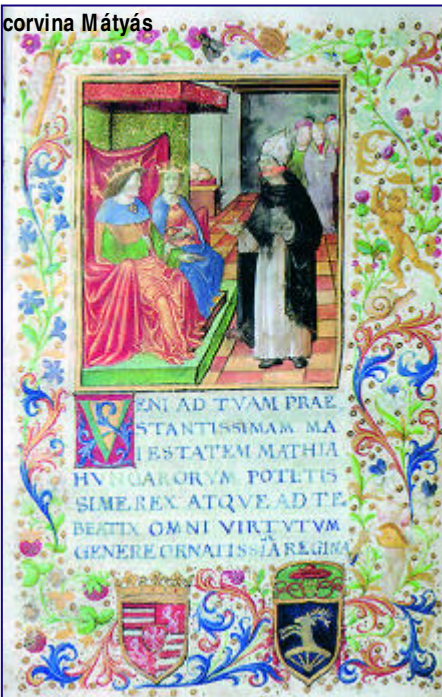 corvina Mátyás
VENI AD TVAM PRAE
STANTISSIMAM MA
IESTATEM MATHIA
HVNGARORVM POTETIS
SIME REX ATQVE AD TE
BEATIX OMNI VIRTVTVM
GENERE ORNATISSIA REGINA